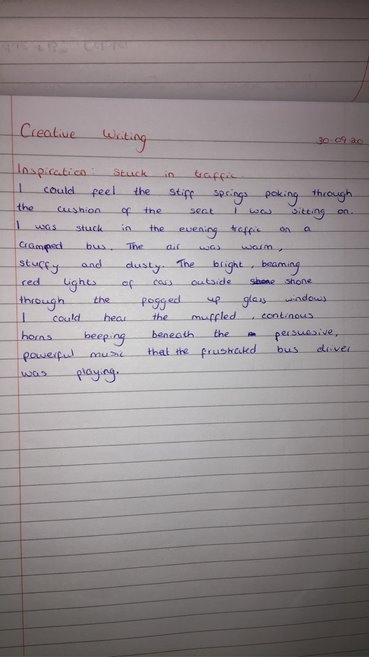 Creative Writing
30.09.20
Inspiration: Stuck in traffic.
I could feel the stiff springs poking through
the cushion of the seat I was sitting on.
I was stuck in the evening traffic on a
cramped bus. The air was warm,
stuffy and dusty. The bright, beaming
red lights of cars outside shone
through the fogged up glass windows
I could hear the muffled, continous
horns beeping beneath the persuasive,
powerful music that the frustrated bus driver
was playing.